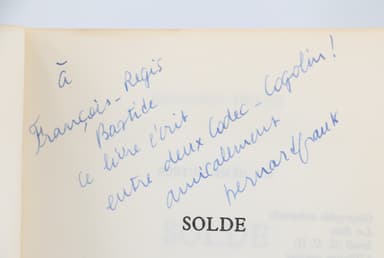 à
François-Regis
Bastide
ce livre écrit
entre deux Codec-Cogolin!
amicalement
bernard frank
SOLDE